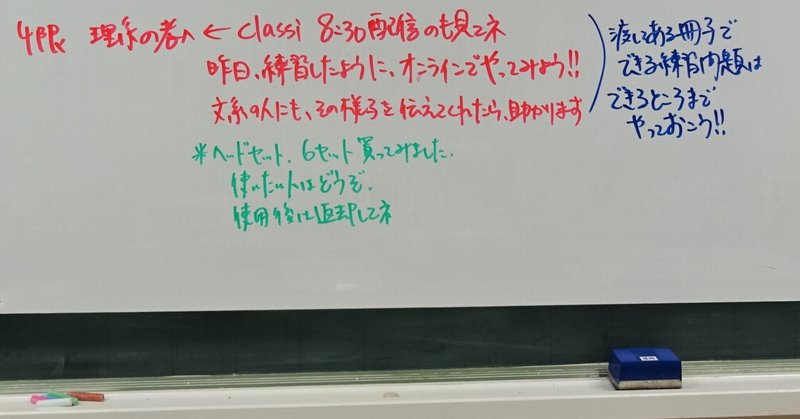 4限 理系の者へ ← Classi 8:30配信のも見てネ
昨日、練習したように、オンラインでやってみよう!!
文系の人にも、その様子を伝えてくれたら、助かります
渡してある冊子で
できる練習問題は
できるところまで
やっておこう!!
*ヘッドセット、6セット買ってみました.
使いたい人はどうぞ.
使用後は返却してネ